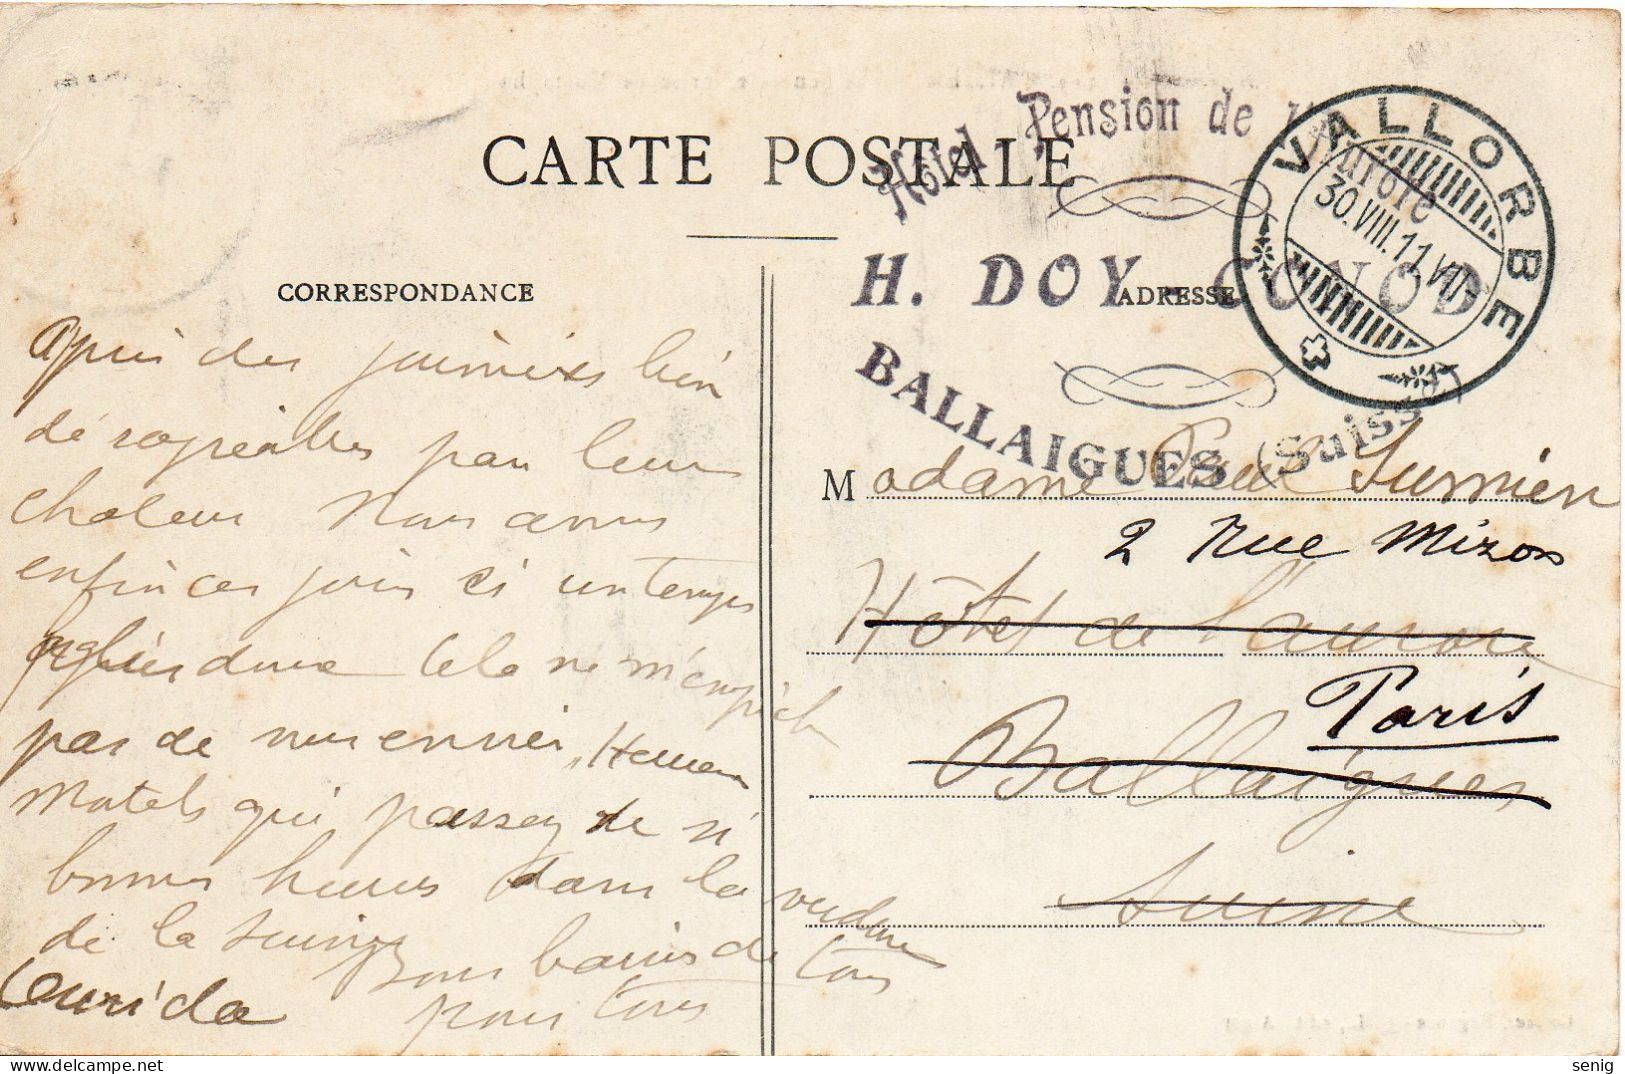 CARTE POSTALE
Hotel Pension de l'Aurore
H. DOY-CONOD
BALLAIGUES (Suisse)
VALLORBE
30.VIII.11.VII
CORRESPONDANCE
ADRESSE
Après des journées bien
désagréables par leur
chaleur Nous avons
enfin ces jours ci un temps
Cela ne m'empêche
pas de
Matels qui passez de si
bonnes heures dans la verdure
de la Suisse
bons baisers de tous
pour tous
Madame Paul Surnien
2 Rue Mizon
Hôtel de l'aurore
Paris
Ballaigues
Suisse
senig